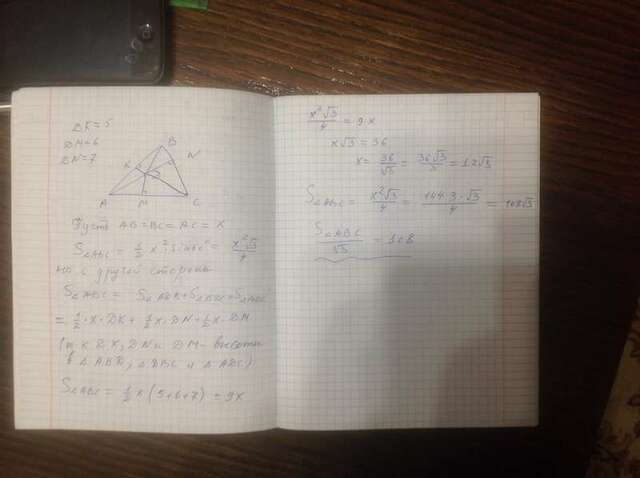 DK=5
DM=6
DN=7
B
K
N
D
A
M
C
Пусть AB=BC=AC=x
S△ABC = 1/2 x²·sin60° = x²√3/4
но с другой стороны
S△ABC = S△ADK+S△BDC+S△ADC
= 1/2·x·DK + 1/2x·DN+1/2x·DM
(т.к DK, DN и DM- высоты
в △ABD, △DBC и △ADC)
S△ABC = 1/2 x(5+6+7) = 9x
x²√3/4 = 9x
x√3 = 36
x= 36/√3 = 36√3/3 = 12√3
S△ABC = x²√3/4 = 144·3·√3/4 = 108√3
S△ABC/√3 = 108